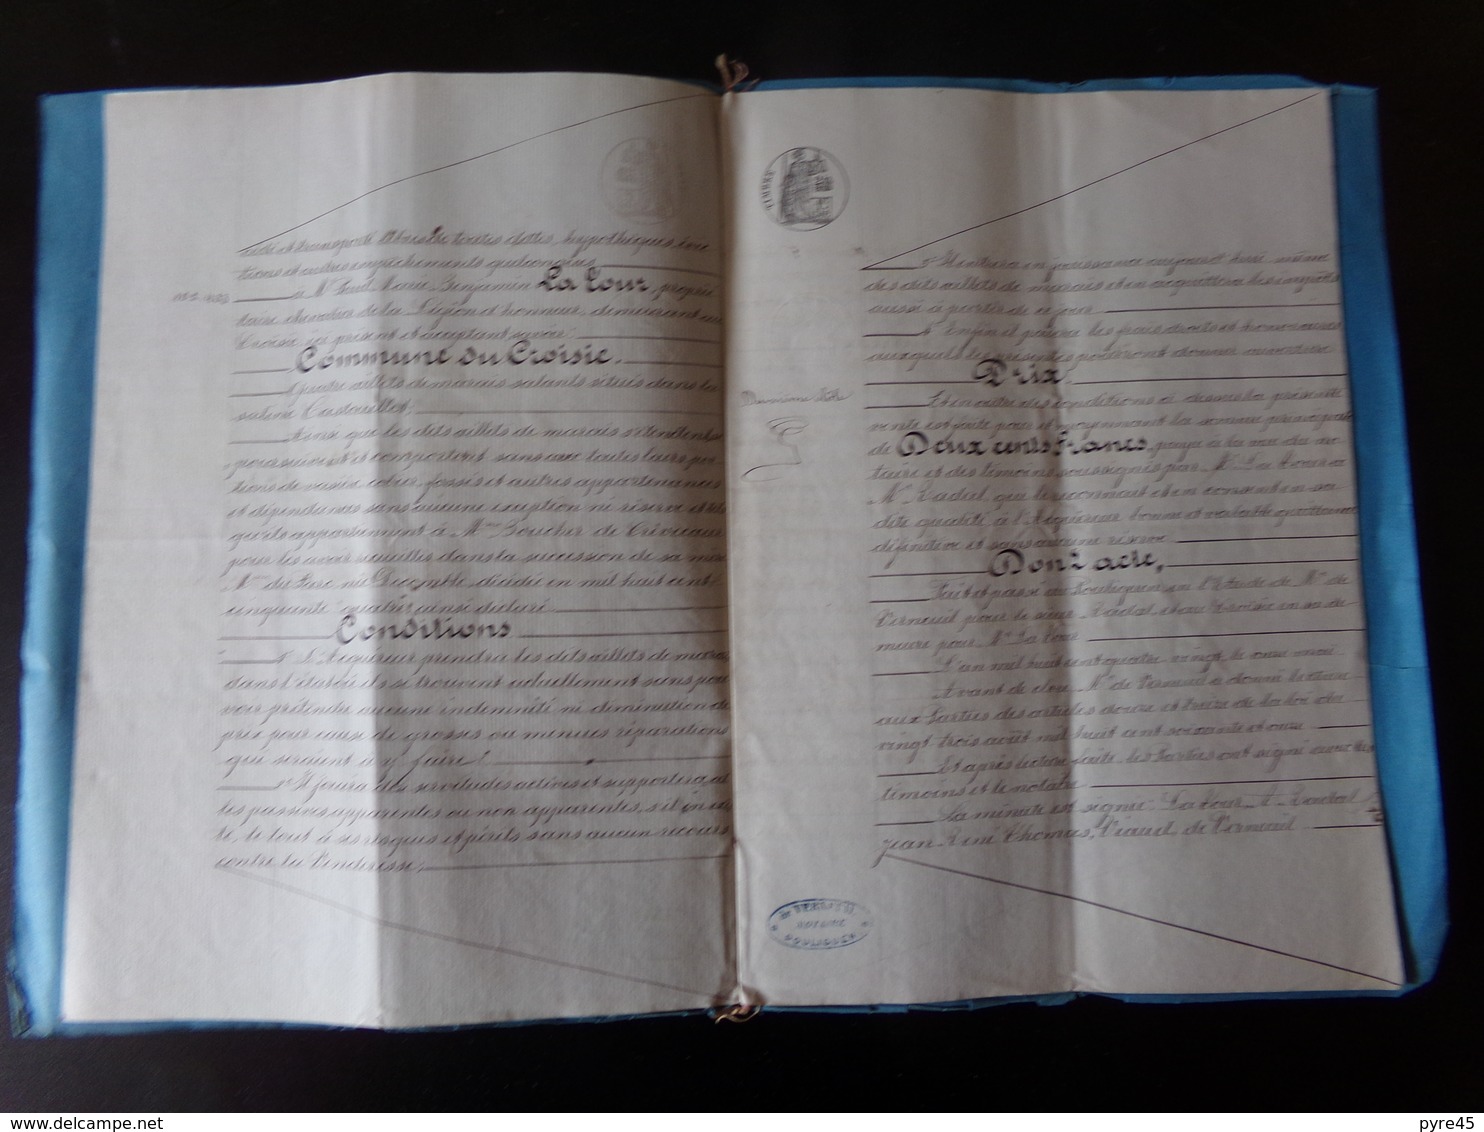 cédé et transporté libres de toutes dettes, hypothèques, évic
tions et autres empêchements quelconques
à Mr Paul Marie Benjamin La Tour, proprié
taire, chevalier de la Légion d'honneur, demeurant au
Croisic ici présent et acceptant savoir:
Commune du Croisic.
Quatre œillets de marais salants situés dans la
saline
Ainsi que les dits œillets de marais s'étendent, se
poursuivent et comportent sans
et autres appartenances
et dépendances sans aucune exception ni réserve et tels
qu'ils appartiennent à Mme
pour les avoir recueillis dans la succession de sa mère
Mme du Parc née Decomble, décédée en mil huit cent
cinquante quatre ainsi déclaré
Conditions
1° L'Acquéreur prendra les dits œillets de marais
dans l'état où ils se trouvent actuellement sans pou
voir prétendre aucune indemnité ni diminution de
prix pour cause de grosses ou menues réparations
qui seraient à y faire!
2° Il jouira des servitudes actives et supportera
les passives apparentes ou non apparentes, s'il en exis
te, le tout à ses risques et périls sans aucun recours
contre la Venderesse,
TIMBRE
3° Il entrera en jouissance aujourd'hui même
des dits œillets de marais et en acquittera les impôts
aussi à partir de ce jour
4° Enfin il paiera les frais droits et honoraires
auxquels les présentes pourront donner ouverture
Prix.
Et en outre des conditions ci dessus la présente
vente est faite pour et moyennant la somme principale
de Deux cents Francs, payée à la vue du no
taire et des témoins soussignés par Mr La Tour à
Mr Radal qui le reconnait et en consent en sa
dite qualité à l'Acquéreur bonne et valable quittance
définitive et sans aucune réserve
Dont acte,
Fait et passé au Pouliguen en l'Etude de Me de
Verneuil pour le sieur Radal et au Croisic en sa de
meure pour Mr La Tour
L'an mil huit cent quatre vingt, le onze mai
Avant de clore, Me de Verneuil a donné lecture
aux Parties des articles douze et treize de la loi du
vingt trois août mil huit cent soixante et onze
Et après lecture faite les Parties ont signé avec les
témoins et le notaire
La minute est signée: La Tour, A. Radal,
Jean René Thomas, Viaud, de Verneuil
de VERNEUIL
NOTAIRE
POULIGUEN
pyre45